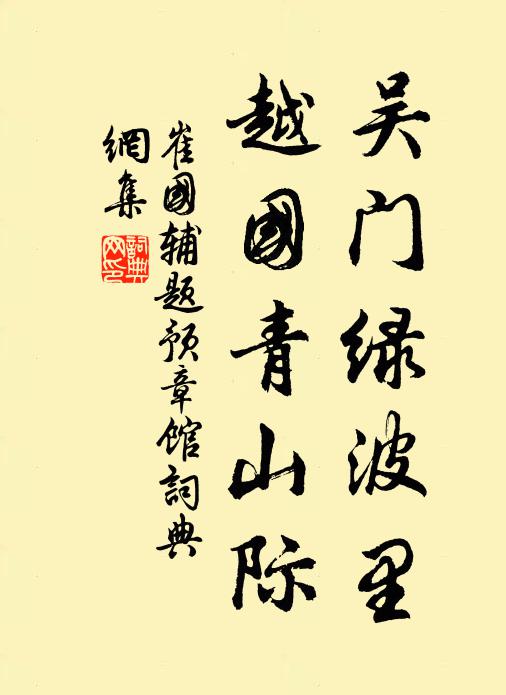 吴门绿波里
越國青山际
崔國辅题预章馆詞典
網集
詞典
网印